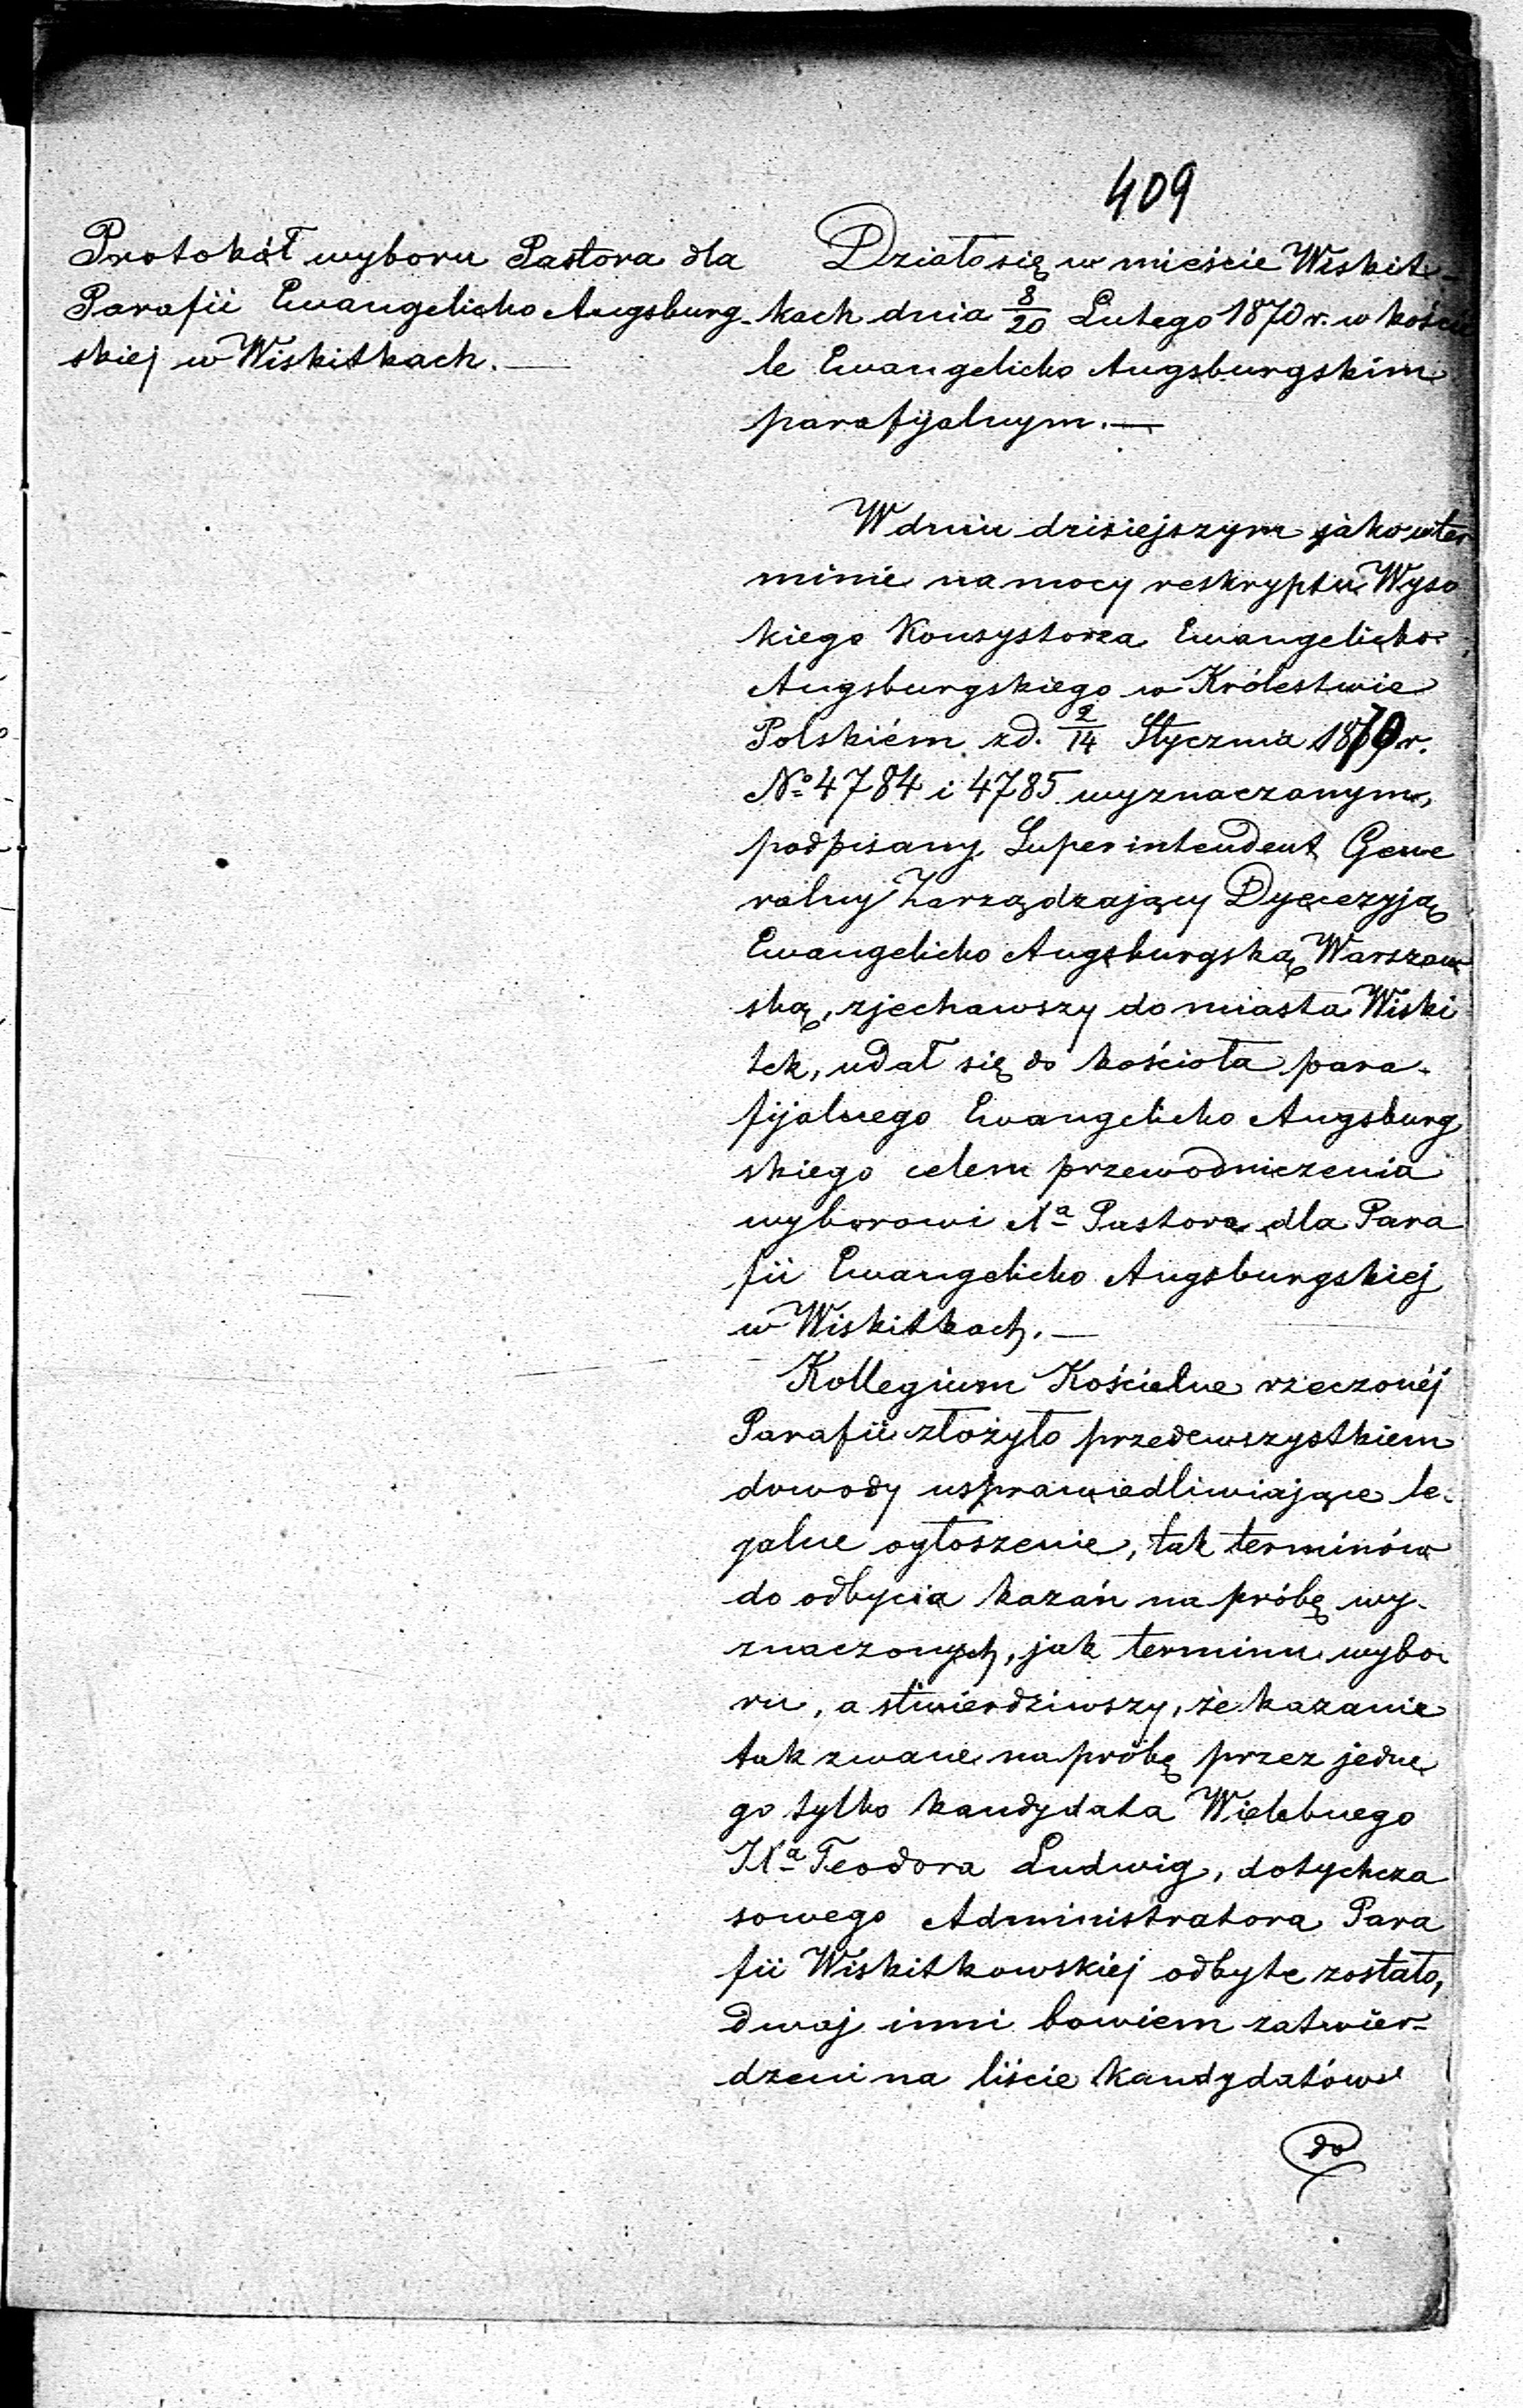 409
Protokół wyboru Pastora dla
Parafii Ewangelicko Augsburg-
skiej w Wiskitkach.—
Działo się w mieście Wiskit-
kach dnia 8/20 Lutego 1870 r. w koście
le Ewangelicko Augsburgskim
parafijalnym.—
W dniu dzisiejszym jako w ter
minie na mocy reskryptu Wyso
kiego Konsystorza Ewangelicko-
Augsburgskiego w Królestwie
Polskiém z d. 2/14 Stycznia 1870 r.
No 4784 i 4785 wyznaczonym,
podpisany Superintendent Gene
ralny Zarządzający Dyecezyją
Ewangelicko Augsburgską Warszaw
ską, zjechawszy do miasta Wiski
tek, udał się do kościoła para-
fijalnego Ewangelicko Augsburg
skiego celem przewodniczenia
wyborowi Xa Pastora dla Para
fii Ewangelicko Augsburgskiej
w Wiskitkach.—
Kollegium Kościelne rzeczonéj
Parafii złożyło przedewszystkiem
dowody usprawiedliwiające le-
galne ogłoszenie, tak terminów
do odbycia kazań na próbę wy-
znaczonych, jak terminu wybo
ru, a stwierdziwszy, że kazanie
tak zwane na próbę przez jedne
go tylko kandydata Wielebnego
Xa Teodora Ludwig, dotychcza
sowego Administratora Para
fii Wiskitkowskiej odbyte zostało,
dwaj inni bowiem zatwier-
dzeni na liście kandydatów
do